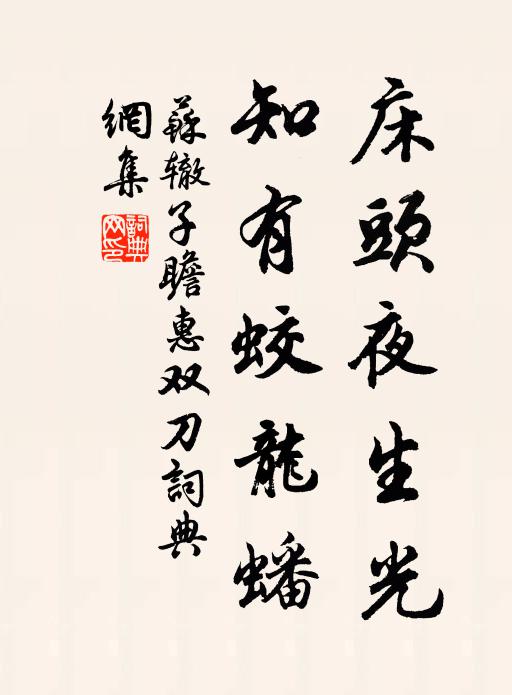 床頭夜生光
知有蛟龍蟠
蘇辙子瞻惠双刀詞典
網集
詞典
网印